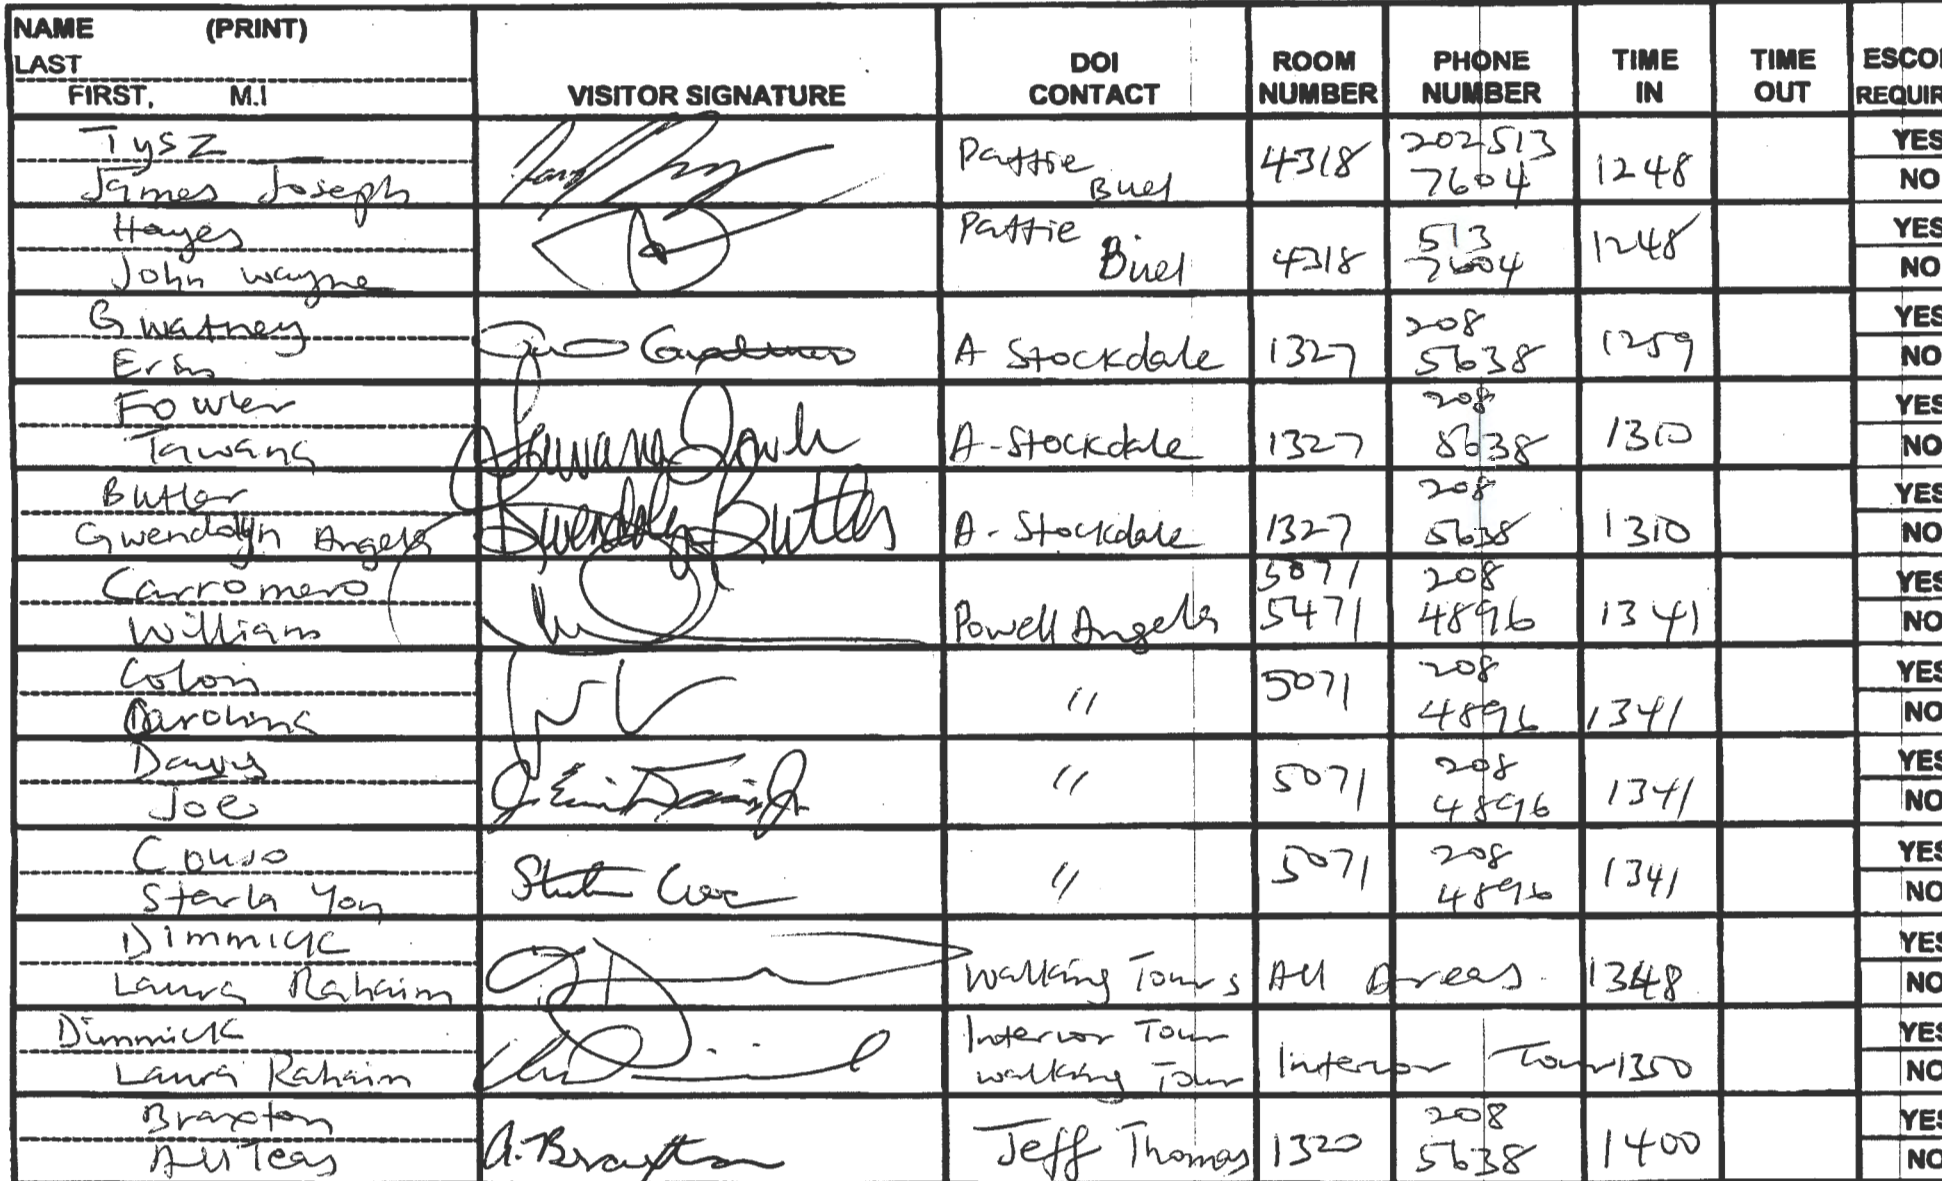 NAME (PRINT)
LAST
FIRST, M.I
VISITOR SIGNATURE
DOI CONTACT
ROOM NUMBER
PHONE NUMBER
TIME IN
TIME OUT
ESCO
REQUIR
Tysz
James Joseph
Pattie Buel
4318
202513 7604
1248
YES
NO
Hayes
John Wayne
Pattie Buel
4318
513 7604
1248
YES
NO
Gwatney
Erin
A Stockdale
1327
208 5638
1259
YES
NO
Fowler
Tawana
Tawana Fowler
A-Stockdale
1327
208 8638
1310
YES
NO
Butler
Gwendolyn Angela
Gwendolyn Butler
A-Stockdale
1327
208 5638
1310
YES
NO
Carromero
William
Powell Angela
5071 5471
208 4896
1341
YES
NO
Colon
Carolina
"
5071
208 4896
1341
YES
NO
Davis
Joe
"
5071
208 4896
1341
YES
NO
Starla Yon
"
5071
208 4896
1341
YES
NO
Dimmick
Laura Rahaim
Walking Tours
All Areas
1348
YES
NO
Dimmick
Laura Rahaim
Interior Tour walking Tour
Interior Tour
1350
YES
NO
Braxton
A. Braxton
Jeff Thomas
1320
208 5638
1400
YES
NO